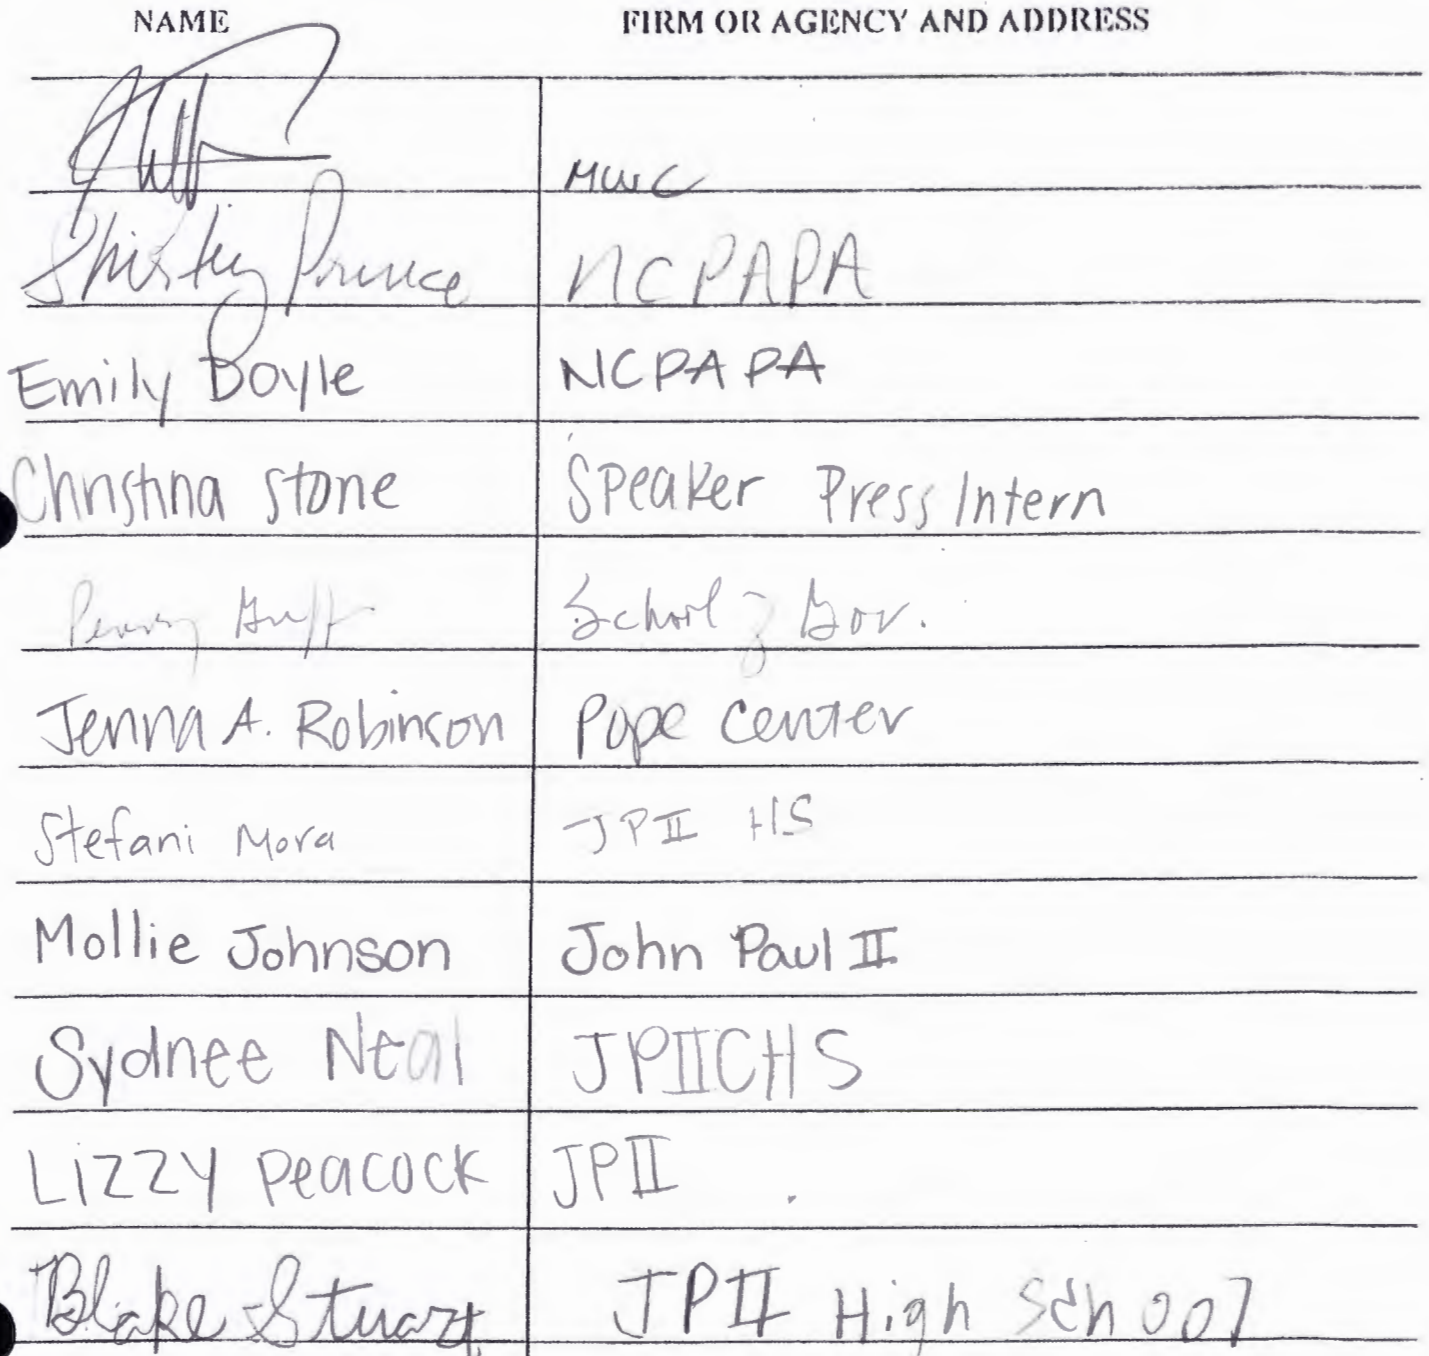 NAME FIRM OR AGENCY AND ADDRESS
MWC
Shirley Prince NCPAPA
Emily Doyle NCPAPA
Christina Stone Speaker Press Intern
School of Gov.
Jenna A. Robinson Pope Center
Stefani Mora JPII HS
Mollie Johnson John Paul II
Sydnee Neal JPIICHS
Lizzy Peacock JPII
Blake Stuart JPII High School